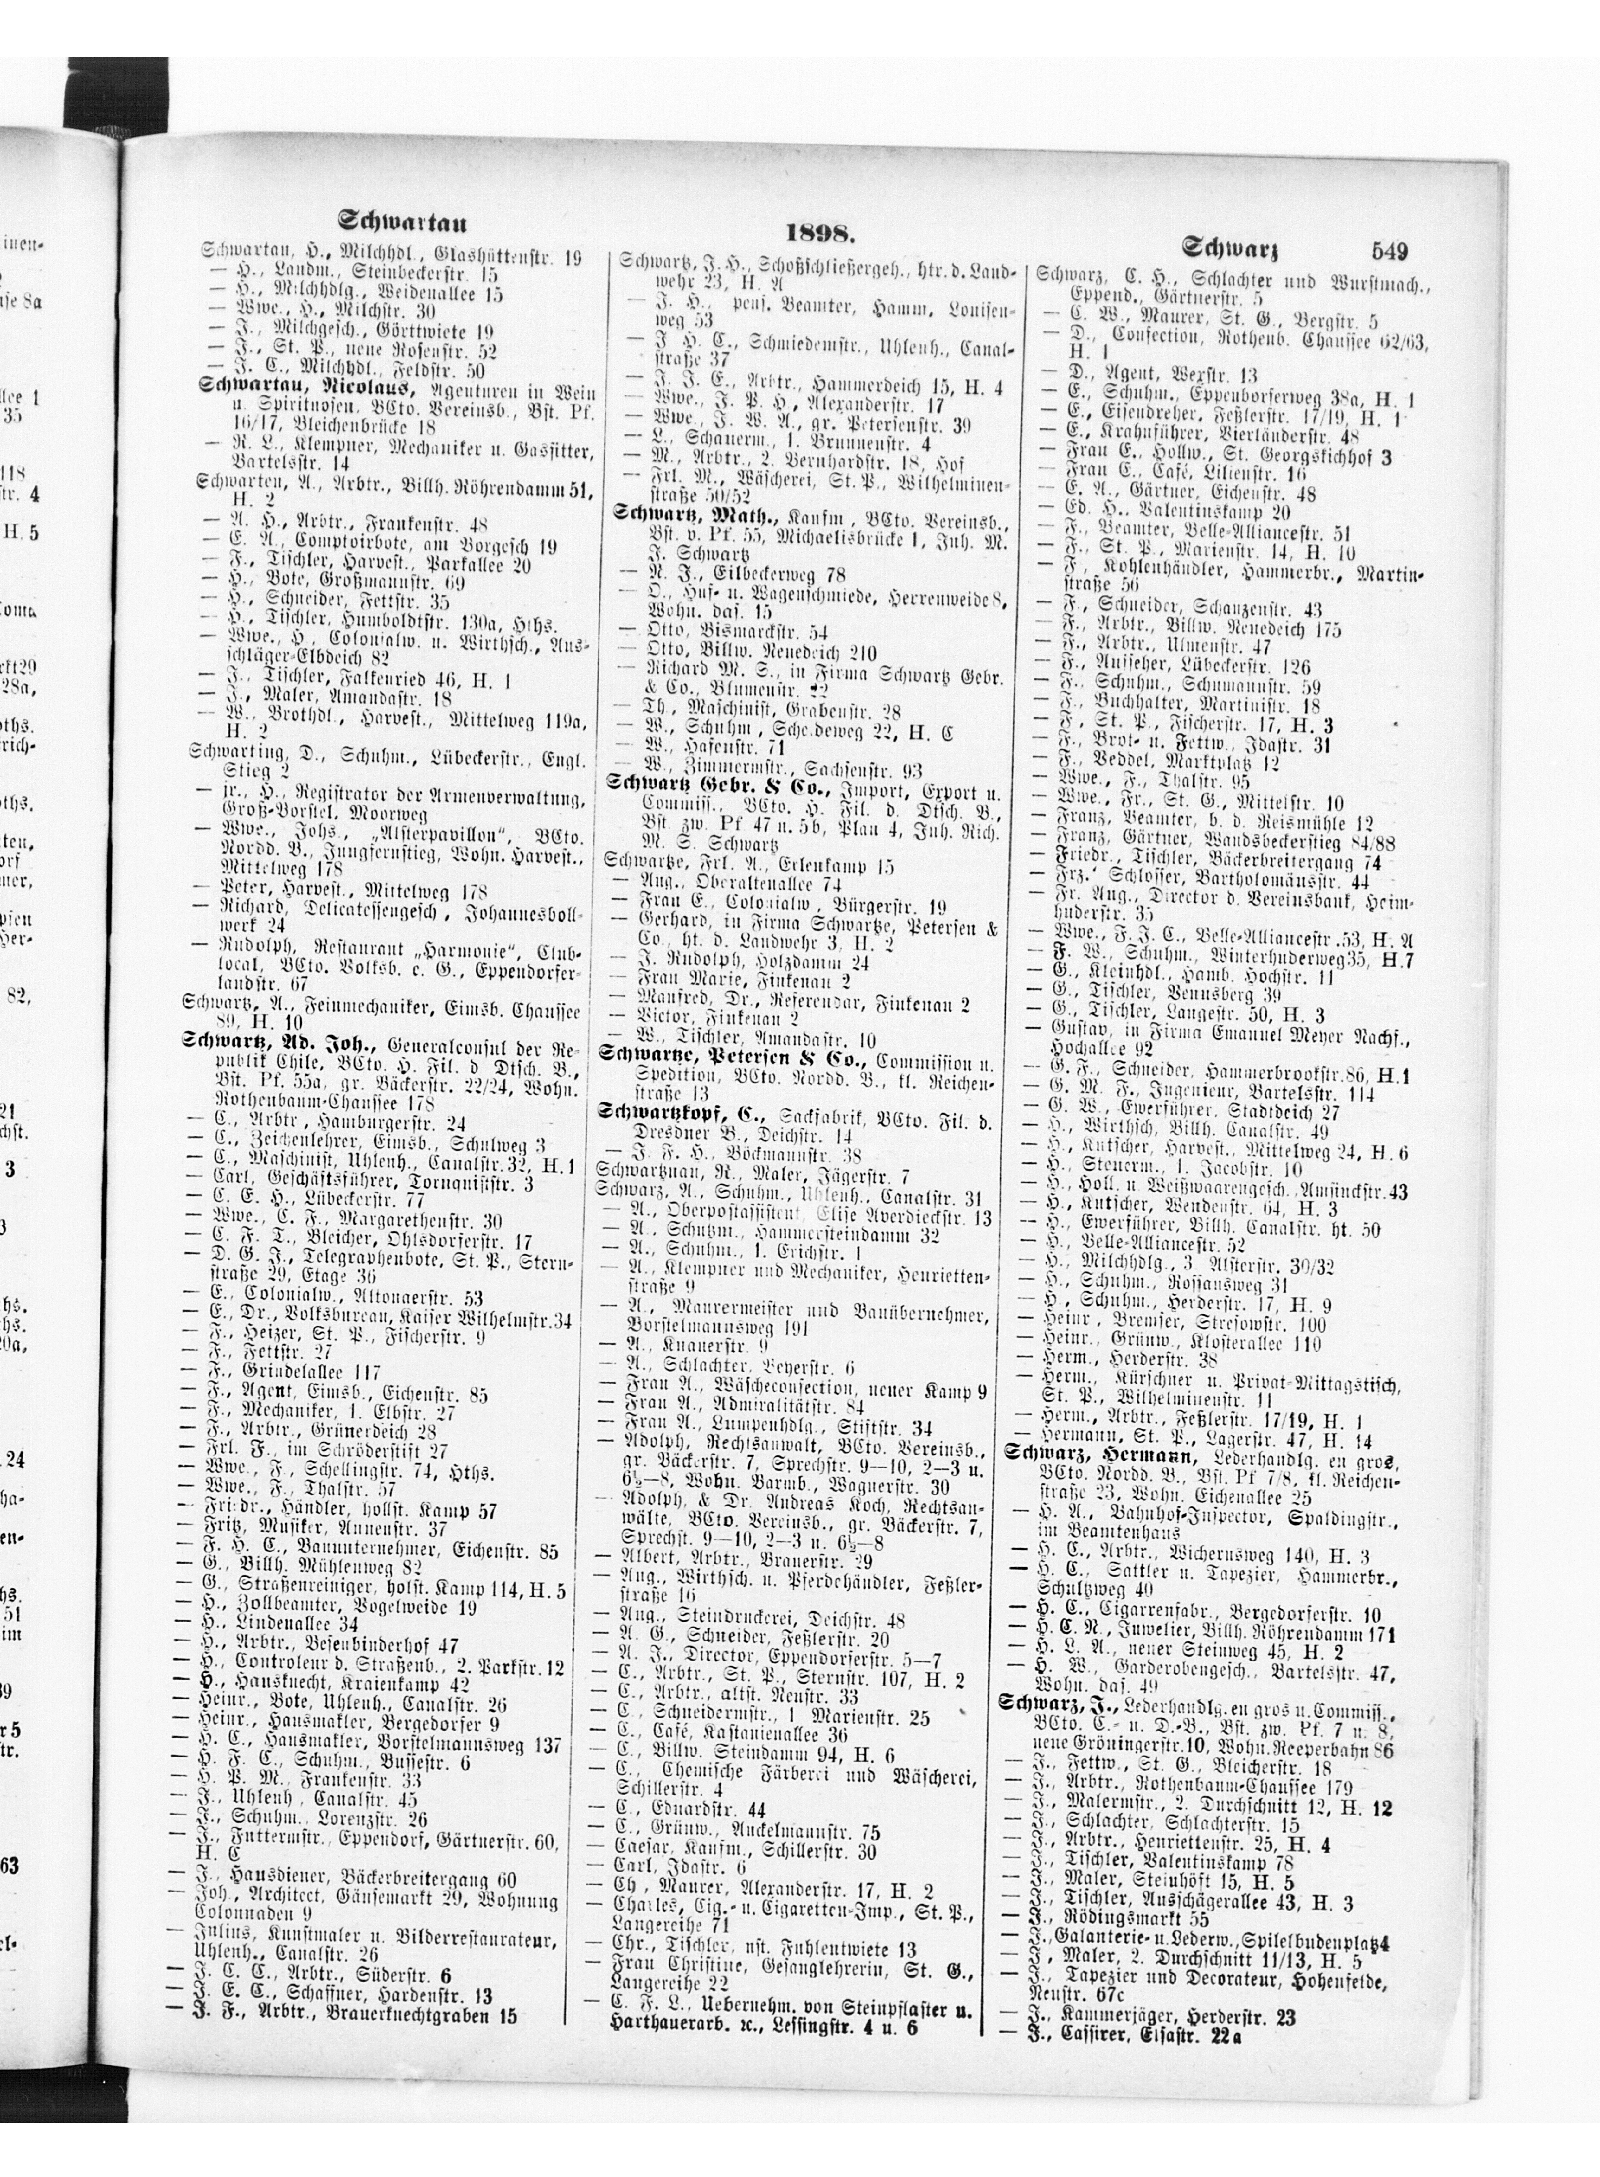 Schwartau
1898.
Schwarz 549
Schwartau, H., Milchhdl., Glashüttenstr. 19
— H., Landm., Steinbeckerstr. 15
— H., Milchhdlg., Weidenallee 15
— Wwe., H., Milchstr. 30
— J., Milchgesch., Görttwiete 19
— J., St. P., neue Rosenstr. 52
— J. C., Milchhdl., Feldstr. 50
Schwartau, Nicolaus, Agenturen in Wein
u. Spirituosen, BCto. Vereinsb., Bst. Pf.
16/17, Bleichenbrücke 18
— R. L., Klempner, Mechaniker u. Gasfitter,
Bartelsstr. 14
Schwarten, A., Arbtr., Billh. Röhrendamm 51,
H. 2
— A. H., Arbtr., Frankenstr. 48
— E. A., Comptoirbote, am Borgesch 19
— F., Tischler, Harvest., Parkallee 20
— H., Bote, Großmannstr. 69
— H., Schneider, Fettstr. 35
— H., Tischler, Humboldtstr. 130a, Hths.
— Wwe., H., Colonialw. u. Wirthsch., Aus-
schläger-Elbdeich 82
— J., Tischler, Falkenried 46, H. 1
— J., Maler, Amandastr. 18
— W., Brothdl., Harvest., Mittelweg 119a,
H. 2
Schwarting, D., Schuhm., Lübeckerstr., Engl.
Stieg 2
— jr., H., Registrator der Armenverwaltung,
Groß-Borstel, Moorweg
— Wwe., Johs., „Alsterpavillon“, BCto.
Nordd. B., Jungfernstieg, Wohn. Harvest.,
Mittelweg 178
— Peter, Harvest., Mittelweg 178
— Richard, Delicatessengesch., Johannesboll-
werk 24
— Rudolph, Restaurant „Harmonie“, Club-
local, BCto. Volksb. e. G., Eppendorfer-
landstr. 67
Schwartz, A., Feinmechaniker, Eimsb. Chaussee
89, H. 10
Schwartz, Ad. Joh., Generalconsul der Re-
publik Chile, BCto. H. Fil. d. Dtsch. B.,
Bst. Pf. 55a, gr. Bäckerstr. 22/24, Wohn.
Rothenbaum-Chaussee 178
— C., Arbtr., Hamburgerstr. 24
— C., Zeichenlehrer, Eimsb., Schulweg 3
— C., Maschinist, Uhlenh., Canalstr. 32, H. 1
— Carl, Geschäftsführer, Tornquiststr. 3
— C. E. H., Lübeckerstr. 77
— Wwe., C. F., Margarethenstr. 30
— C. F. T., Bleicher, Ohlsdorferstr. 17
— D. G. J., Telegraphenbote, St. P., Stern-
straße 29, Etage 36
— E., Colonialw., Altonaerstr. 53
— E., Dr., Volksbureau, Kaiser Wilhelmstr. 34
— F., Heizer, St. P., Fischerstr. 9
— F., Fettstr. 27
— F., Grindelallee 117
— F., Agent, Eimsb., Eichenstr. 85
— F., Mechaniker, 1. Elbstr. 27
— F., Arbtr., Grünerdeich 28
— Frl. F., im Schröderstift 27
— Wwe., F., Schellingstr. 74, Hths.
— Wwe., F., Thalstr. 57
— Friedr., Händler, hollst. Kamp 57
— Fritz, Musiker, Annenstr. 37
— F. H. C., Bauunternehmer, Eichenstr. 85
— G., Billh. Mühlenweg 82
— G., Straßenreiniger, holst. Kamp 114, H. 5
— H., Zollbeamter, Vogelweide 19
— H., Lindenallee 34
— H., Arbtr., Besenbinderhof 47
— H., Controleur d. Straßenb., 2. Parkstr. 12
— H., Hausknecht, Kraienkamp 42
— Heinr., Bote, Uhlenh., Canalstr. 26
— Heinr., Hausmakler, Bergedorfer 9
— H. C., Hausmakler, Borstelmannsweg 137
— H. F. C., Schuhm., Bussestr. 6
— H. P. M., Frankenstr. 33
— J., Uhlenh., Canalstr. 45
— J., Schuhm., Lorenzstr. 26
— J., Futtermstr., Eppendorf, Gärtnerstr. 60,
H. C
— J., Hausdiener, Bäckerbreitergang 60
— Joh., Architect, Gänsemarkt 29, Wohnung
Colonnaden 9
— Julius, Kunstmaler u. Bilderrestaurateur,
Uhlenh., Canalstr. 26
— J. C. C., Arbtr., Süderstr. 6
— J. E. C., Schaffner, Hardenstr. 13
— J. F., Arbtr., Brauerknechtgraben 15
Schwartz, J. H., Schoßschließergeh., htr. d. Land-
wehr 23, H. A
— J. H., pens. Beamter, Hamm, Louisen-
weg 53
— J. H. C., Schmiedemstr., Uhlenh., Canal-
straße 37
— J. J. E., Arbtr., Hammerdeich 15, H. 4
— Wwe., J. P. H., Alexanderstr. 17
— Wwe., J. W. A., gr. Petersenstr. 39
— L., Schauerm., 1. Brunnenstr. 4
— M., Arbtr., 2. Bernhardstr. 18, Hof
— Frl. M., Wäscherei, St. P., Wilhelminen-
straße 50/52
Schwartz, Math., Kaufm., BCto. Vereinsb.,
Bst. v. Pf. 55, Michaelisbrücke 1, Inh. M.
J. Schwartz
— N. J., Eilbeckerweg 78
— O., Huf- u. Wagenschmiede, Herrenweide 8,
Wohn. das. 15
— Otto, Bismarckstr. 54
— Otto, Billw. Neuedeich 210
— Richard M. S., in Firma Schwartz Gebr.
& Co., Blumenstr. 22
— Th., Maschinist, Grabenstr. 28
— W., Schuhm., Scheideweg 22, H. C
— W., Hafenstr. 71
— W., Zimmermstr., Sachsenstr. 93
Schwartz Gebr. & Co., Import, Export u.
Commiss., BCto. H. Fil. d. Dtsch. B.,
Bst. zw. Pf 47 u. 5b, Plan 4, Inh. Rich.
M. S. Schwartz
Schwartze, Frl. A., Erlenkamp 15
— Aug., Oberaltenallee 74
— Frau E., Colonialw., Bürgerstr. 19
— Gerhard, in Firma Schwartze, Petersen &
Co., ht. d. Landwehr 3, H. 2
— J. Rudolph, Holzdamm 24
— Frau Marie, Finkenau 2
— Manfred, Dr., Referendar, Finkenau 2
— Victor, Finkenau 2
— W., Tischler, Amandastr. 10
Schwartze, Petersen & Co., Commission u.
Spedition, BCto. Nordd. B., kl. Reichen-
straße 13
Schwartzkopf, C., Sackfabrik, BCto. Fil. d.
Dresdner B., Deichstr. 14
— J. F. H., Böckmannstr. 38
Schwartznau, R., Maler, Jägerstr. 7
Schwarz, A., Schuhm., Uhlenh., Canalstr. 31
— A., Oberpostassistent, Elise Averdieckstr. 13
— A., Schutzm., Hammersteindamm 32
— A., Schuhm., 1. Erichstr. 1
— A., Klempner und Mechaniker, Henrietten-
straße 9
— A., Maurermeister und Bauübernehmer,
Borstelmannsweg 191
— A., Knauerstr. 9
— A., Schlachter, Beyerstr. 6
— Frau A., Wäscheconfection, neuer Kamp 9
— Frau A., Admiralitätstr. 84
— Frau A., Lumpenhdlg., Stiftstr. 34
— Adolph, Rechtsanwalt, BCto. Vereinsb.,
gr. Bäckerstr. 7, Sprechstr. 9—10, 2—3 u.
6½—8, Wohn. Barmb., Wagnerstr. 30
— Adolph, & Dr. Andreas Koch, Rechtsan-
wälte, BCto. Vereinsb., gr. Bäckerstr. 7,
Sprechst. 9—10, 2—3 u. 6½—8
— Albert, Arbtr., Brauerstr. 29
— Aug., Wirthsch. u. Pferdehändler, Feßler-
straße 16
— Aug., Steindruckerei, Deichstr. 48
— A. G., Schneider, Feßlerstr. 20
— A. J., Director, Eppendorferstr. 5—7
— C., Arbtr., St. P., Sternstr. 107, H. 2
— C., Arbtr., altst. Neustr. 33
— C., Schneidermstr., 1 Marienstr. 25
— C., Café, Kastanienallee 36
— C., Billw. Steindamm 94, H. 6
— C., Chemische Färberei und Wäscherei,
Schillerstr. 4
— C., Eduardstr. 44
— C., Grünw., Anckelmannstr. 75
— Caesar, Kaufm., Schillerstr. 30
— Carl, Idastr. 6
— Ch., Maurer, Alexanderstr. 17, H. 2
— Charles, Cig.- u. Cigaretten-Imp., St. P.,
Langereihe 71
— Chr., Tischler, nst. Fuhlentwiete 13
— Frau Christine, Gesanglehrerin, St. G.,
Langereihe 22
— C. F. L., Uebernehm. von Steinpflaster u.
Harthauerarb. ꝛc., Lessingstr. 4 u. 6
Schwarz, C. H., Schlachter und Wurstmach.,
Eppend., Gärtnerstr. 5
— C. W., Maurer, St. G., Bergstr. 5
— D., Confection, Rothenb. Chaussee 62/63,
H. 1
— D., Agent, Wexstr. 13
— E., Schuhm., Eppendorferweg 38a, H. 1
— E., Eisendreher, Feßlerstr. 17/19, H. 1
— E., Krahnführer, Vierländerstr. 48
— Frau E., Hollw., St. Georgskichhof 3
— Frau E., Café, Lilienstr. 16
— E. A., Gärtner, Eichenstr. 48
— Ed. H., Valentinskamp 20
— F., Beamter, Belle-Alliancestr. 51
— F., St. P., Marienstr. 14, H. 10
— F., Kohlenhändler, Hammerbr., Martin-
straße 56
— F., Schneider, Schanzenstr. 43
— F., Arbtr., Billw. Neuedeich 175
— F., Arbtr., Ulmenstr. 47
— F., Aufseher, Lübeckerstr. 126
— F., Schuhm., Schumannstr. 59
— F., Buchhalter, Martinistr. 18
— F., St. P., Fischerstr. 17, H. 3
— F., Brot- u. Fettw., Idastr. 31
— F., Veddel, Marktplatz 12
— Wwe., F., Thalstr. 95
— Wwe., Fr., St. G., Mittelstr. 10
— Franz, Beamter, b. d. Reismühle 12
— Franz, Gärtner, Wandsbeckerstieg 84/88
— Friedr., Tischler, Bäckerbreitergang 74
— Frz. Schlosser, Bartholomäusstr. 44
— Fr. Aug., Director d. Vereinsbank, Heim-
huderstr. 35
— Wwe., F. J. C., Belle-Alliancestr. 53, H. A
— F. W., Schuhm., Winterhuderweg 35, H. 7
— G., Kleinhdl., Hamb. Hochstr. 11
— G., Tischler, Venusberg 39
— G., Tischler, Langestr. 50, H. 3
— Gustav, in Firma Emanuel Meyer Nachf.,
Hochallee 92
— G. F., Schneider, Hammerbrookstr. 86, H. 1
— G. M. F., Ingenieur, Bartelsstr. 114
— G. W., Ewerführer, Stadtdeich 27
— H., Wirthsch, Billh. Canalstr. 49
— H., Kutscher, Harvest., Mittelweg 24, H. 6
— H., Steuerm., 1. Jacobstr. 10
— H., Holl. u. Weißwaarengesch., Amsinckstr. 43
— H., Kutscher, Wendenstr. 64, H. 3
— H., Ewerführer, Billh. Canalstr. ht. 50
— H., Belle-Alliancestr. 52
— H., Milchhdlg., 3 Alsterstr. 30/32
— H., Schuhm., Rossausweg 31
— H., Schuhm., Herderstr. 17, H. 9
— Heinr., Bremser, Stresowstr. 100
— Heinr., Grünw., Klosterallee 110
— Herm., Herderstr. 38
— Herm., Kürschner u. Privat-Mittagstisch,
St. P., Wilhelminenstr. 11
— Herm., Arbtr., Feßlerstr. 17/19, H. 1
— Hermann, St. P., Lagerstr. 47, H. 14
Schwarz, Hermann, Lederhandlg. en gros,
BCto. Nordd. B., Bst. Pf 7/8, kl. Reichen-
straße 23, Wohn. Eichenallee 25
— H. A., Bahnhof-Inspector, Spaldingstr.,
im Beamtenhaus
— H. C., Arbtr., Wichernsweg 140, H. 3
— H. C., Sattler u. Tapezier, Hammerbr.,
Schultzweg 40
— H. C., Cigarrenfabr., Bergedorferstr. 10
— H. C. N., Juwelier, Billh. Röhrendamm 171
— H. L. A., neuer Steinweg 45, H. 2
— H. W., Garderobengesch., Bartelsstr. 47,
Wohn. das. 49
Schwarz, J., Lederhandlg. en gros u. Commiss.,
BCto. C.- u. D.-B., Bst. zw. Pf. 7 u. 8,
neue Gröningerstr. 10, Wohn. Reeperbahn 86
— J., Fettw., St. G., Bleicherstr. 18
— J., Arbtr., Rothenbaum-Chaussee 179
— J., Malermstr., 2. Durchschnitt 12, H. 12
— J., Schlachter, Schlachterstr. 15
— J., Arbtr., Henriettenstr. 25, H. 4
— J., Tischler, Valentinskamp 78
— J., Maler, Steinhöft 15, H. 5
— J., Tischler, Ausschägerallee 43, H. 3
— J., Rödingsmarkt 55
— J., Galanterie- u. Lederw., Spielbudenplatz 4
— J., Maler, 2. Durchschnitt 11/13, H. 5
— J., Tapezier und Decorateur, Hohenfelde,
Neustr. 67c
— J., Kammerjäger, Herderstr. 23
— J., Cassirer, Elsastr. 22a